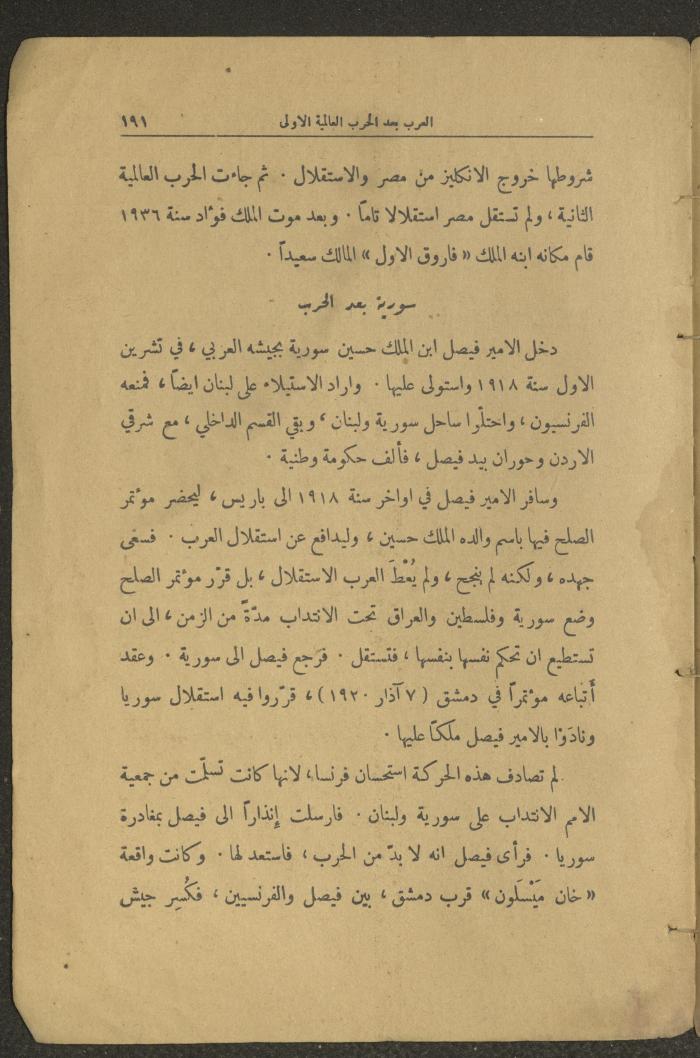 العرب بعد الحرب العالمية الاولى ١٩١
شروطها خروج الانكليز من مصر والاستقلال . ثم جاءت الحرب العالمية
الثانية ، ولم تستقل مصر استقلالا تاماً . وبعد موت الملك فؤاد سنة ١٩٣٦
قام مكانه ابنه الملك « فاروق الاول » المالك سعيداً .
سورية بعد الحرب
دخل الامير فيصل ابن الملك حسين سورية بجيشه العربي ، في تشرين
الاول سنة ١٩١٨ واستولى عليها . واراد الاستيلاء على لبنان ايضاً ، فمنعه
الفرنسيون ، واحتلّوا ساحل سورية ولبنان ، وبقي القسم الداخلي ، مع شرقي
الاردن وحوران بيد فيصل ، فألف حكومة وطنية .
وسافر الامير فيصل في اواخر سنة ١٩١٨ الى باريس ، ليحضر مؤتمر
الصلح فيها باسم والده الملك حسين ، وليدافع عن استقلال العرب . فسعَى
جهده ، ولكنه لم ينجح ، ولم يُعْطَ العرب الاستقلال ، بل قرّر مؤتمر الصلح
وضع سورية وفلسطين والعراق تحت الانتداب مدّةً من الزمن ، الى ان
تستطيع ان تحكم نفسها بنفسها ، فتستقل . فرجع فيصل الى سورية . وعقد
أَتباعه مؤتمراً في دمشق ( ٧ آذار ١٩٢٠ ) ، قرّروا فيه استقلال سوريا
ونادَوْا بالامير فيصل ملكاً عليها .
لم تصادف هذه الحركة استحسان فرنسا ، لانها كانت تسلّمت من جمعية
الامم الانتداب على سورية ولبنان . فارسلت إنذاراً الى فيصل بمغادرة
سوريا . فرأى فيصل انه لا بدّ من الحرب ، فاستعد لها . وكانت واقعة
« خان مَيْسَلون » قرب دمشق ، بين فيصل والفرنسيين ، فكُسِر جيش